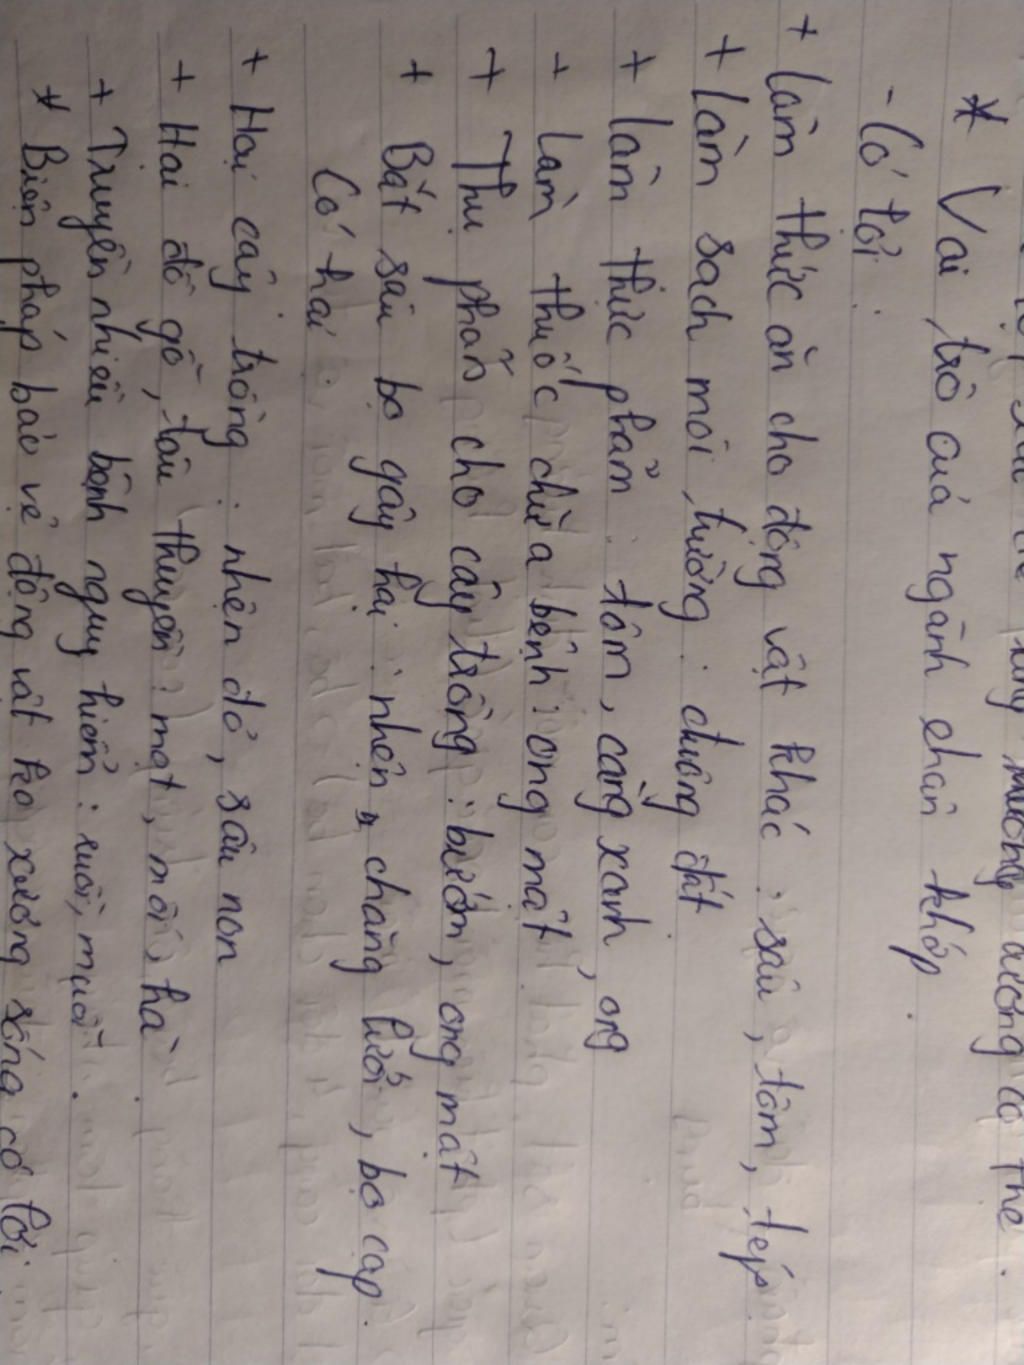 mường dương có thể.
* Vai trò của ngành chân khớp
- Có lợi:
+ Làm thức ăn cho động vật khác: sâu, tôm, tép
+ Làm sạch môi trường: chuông đất
+ Làm thực phẩm: tôm, càng xanh, ong
+ Làm thuốc chữa bệnh: ong mật
+ Thụ phấn cho cây trồng: bướm, ong mật
+ Bắt sâu bọ gây hại: nhện, chàng lưới, bọ cạp.
Có hại
+ Hại cây trồng: nhện đỏ, sâu non
+ Hại đồ gỗ, tàu thuyền: mạt, mối, hà
+ Truyền nhiều bệnh nguy hiểm: ruồi, muỗi.
* Biện pháp bảo vệ động vật ko xương sống có lợi.